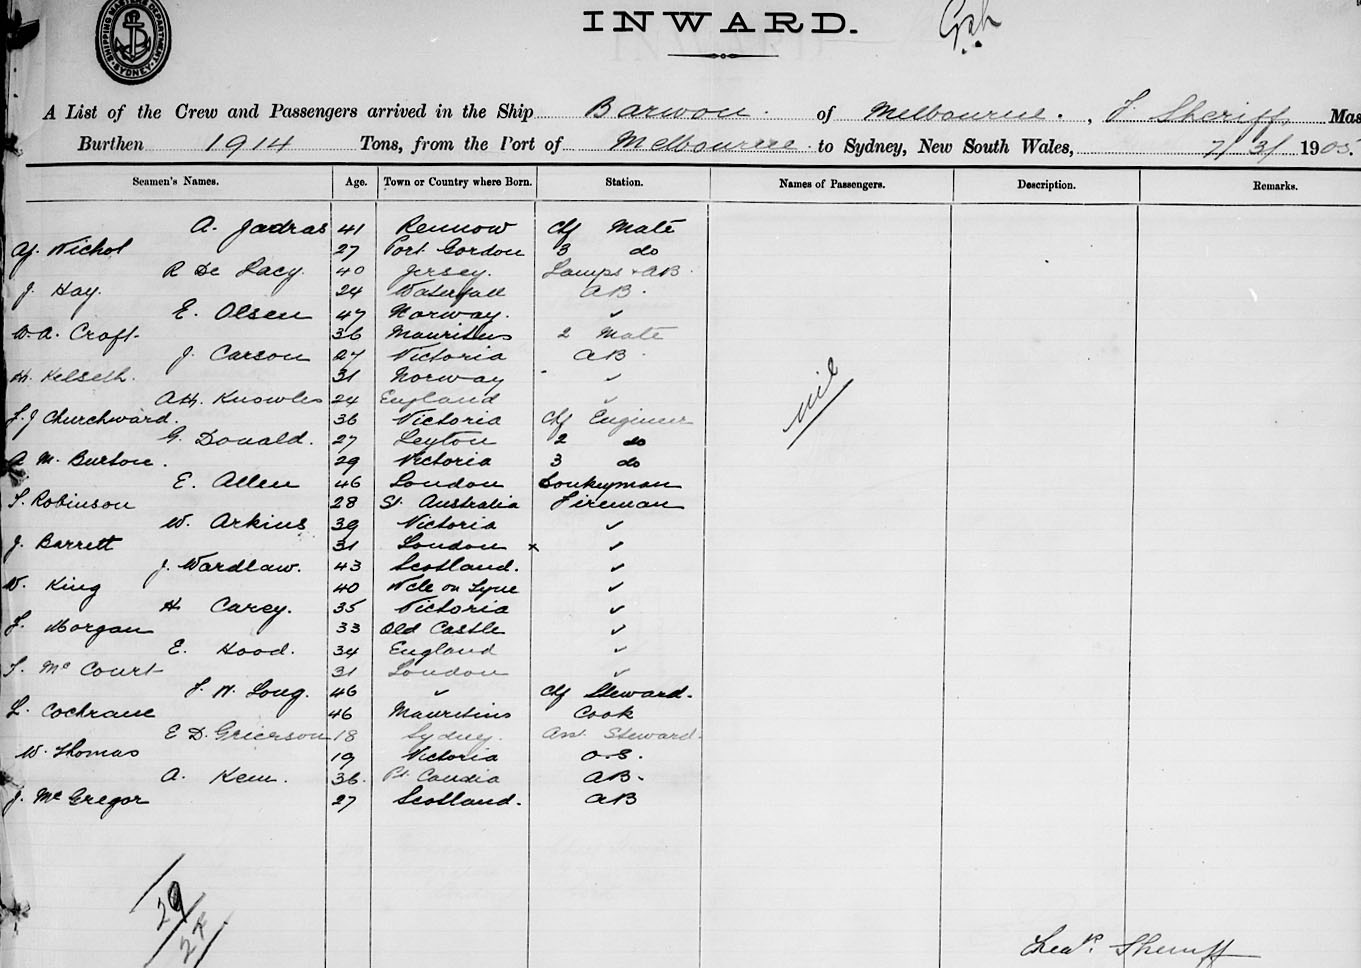 SHIPPING MASTERS DEPARTMENT SYDNEY
INWARD.
A List of the Crew and Passengers arrived in the Ship Barwon. of Melbourne. , J. Sheriff, Mas
Burthen 1914 Tons, from the Port of Melbourne to Sydney, New South Wales, 7/3/ 1905.
Seamen's Names. Age. Town or Country where Born. Station. Names of Passengers. Description. Remarks.
A. Jadras 41 Rennow Chf Mate
Nichol 27 Port Gordon 3 do
R De Lacy. 40 Jersey. Lamps + AB.
J. Hay. 24 AB.
E. Olsen 47 Norway. ✓
W. A. Croft. 36 Mauritius 2 Mate
J. Carson 27 Victoria AB.
H. Kelseth. 31 Norway ✓
A H. Knowles 24 England ✓
Churchward. 36 Victoria Chf Engineer
G. Donald. 27 Leyton 2 do
A M. Burton. 29 Victoria 3 do
E. Allen 46 London Donkeyman
Robinson 28 St. Australia Fireman
W. Arkins 39 Victoria ✓
J. Barrett 31 London x ✓
J. Wardlaw. 43 Scotland. ✓
W. King 40 Ncle on Tyne ✓
H Carey. 35 Victoria ✓
Morgan 33 Old Castle ✓
E. Hood. 34 England ✓
Mc Court 31 London ✓
W. Long. 46 ✓ Chf Steward.
L. Cochrane 46 Mauritius Cook
E D. Grierson 18 Sydney. Asst. Steward.
W. Thomas 19 Victoria O.S.
A. Kem. 36. Pt. Candia AB.
J. Mc Gregor 27 Scotland. AB
nil
29
Sheriff